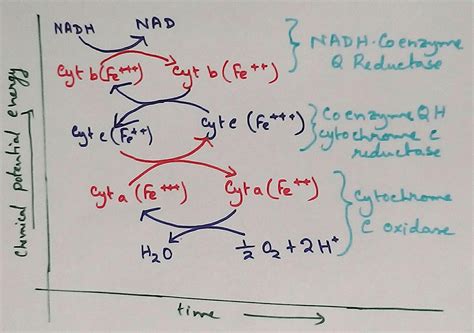 NADH NAD
Cyt b (Fe+++) Cyt b (Fe++)
Cyt c (Fe++) Cyt c (Fe+++)
Cyt a (Fe+++) Cyt a (Fe++)
H₂O ½ O₂ + 2H⁺
NADH-Coenzyme
Q Reductase
Coenzyme QH
cytochrome c
reductase
Cytochrome
C oxidase
Chemical potential energy
time